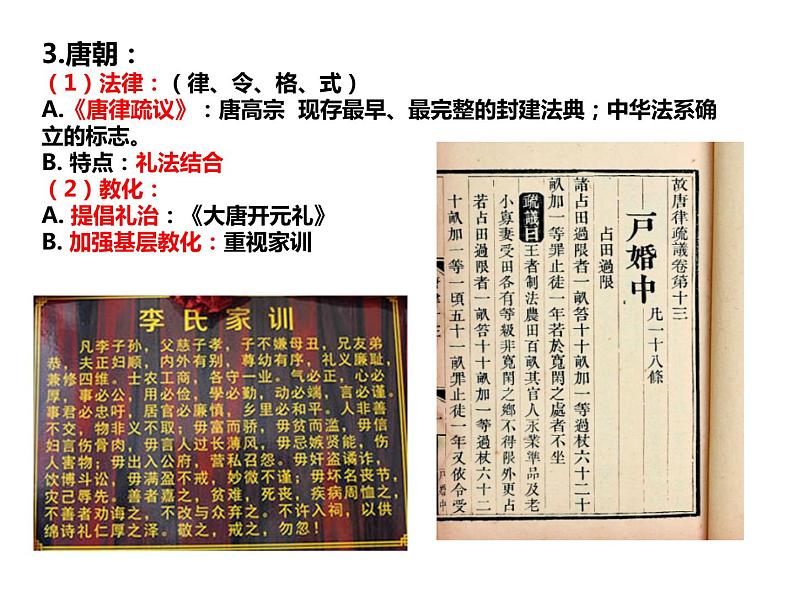 3.唐朝：
（1）法律：（律、令、格、式）
A.《唐律疏议》：唐高宗 现存最早、最完整的封建法典；中华法系确
立的标志。
B. 特点：礼法结合
（2）教化：
A. 提倡礼治：《大唐开元礼》
B. 加强基层教化：重视家训
李氏家训
凡李子孙，父慈子孝，子不嫌母丑，兄友弟
恭，夫正妇顺，内外有别，尊幼有序，礼义廉耻，
兼修四维。士农工商，各守一业。气必正，心必
厚，事必公，用必俭，學必勤，动必端，言必谨。
事君必忠吁，居官必廉慎，乡里必和平。人非善
不交，物非义不取；毋富而骄，毋贫而滥，毋信
妇言伤骨肉，毋言人过长薄风，毋忌嫉贤能，伤
人害物；毋出入官府，营私召怨。毋奸盗谲诈，
饮博斗讼，毋满盈不戒，妙微不谨；毋坏名丧节，
灾己辱先。善者嘉之，贫难，死丧，疾病周恤之，
不善者劝诲之，不改与众弃之。不许入祠，以供
绵诗礼仁厚之泽。敬之，戒之，勿忽！
故唐律疏議卷第十三
戸婚中 凡一十八條
占田過限
諸占田過限者一畝笞十十畝加一等過杖六十二十
畝加一等罪止徒一年若於寬閑之處者不坐
疏議曰王者制法農田百畝其官人永業準品及老
小寡妻受田各有等級非寬閑之鄉不得限外更占
若占田過限者一畝笞十十畝加一等過杖六十二
十畝加一等一頃五十一畝罪止徒一年又依令受